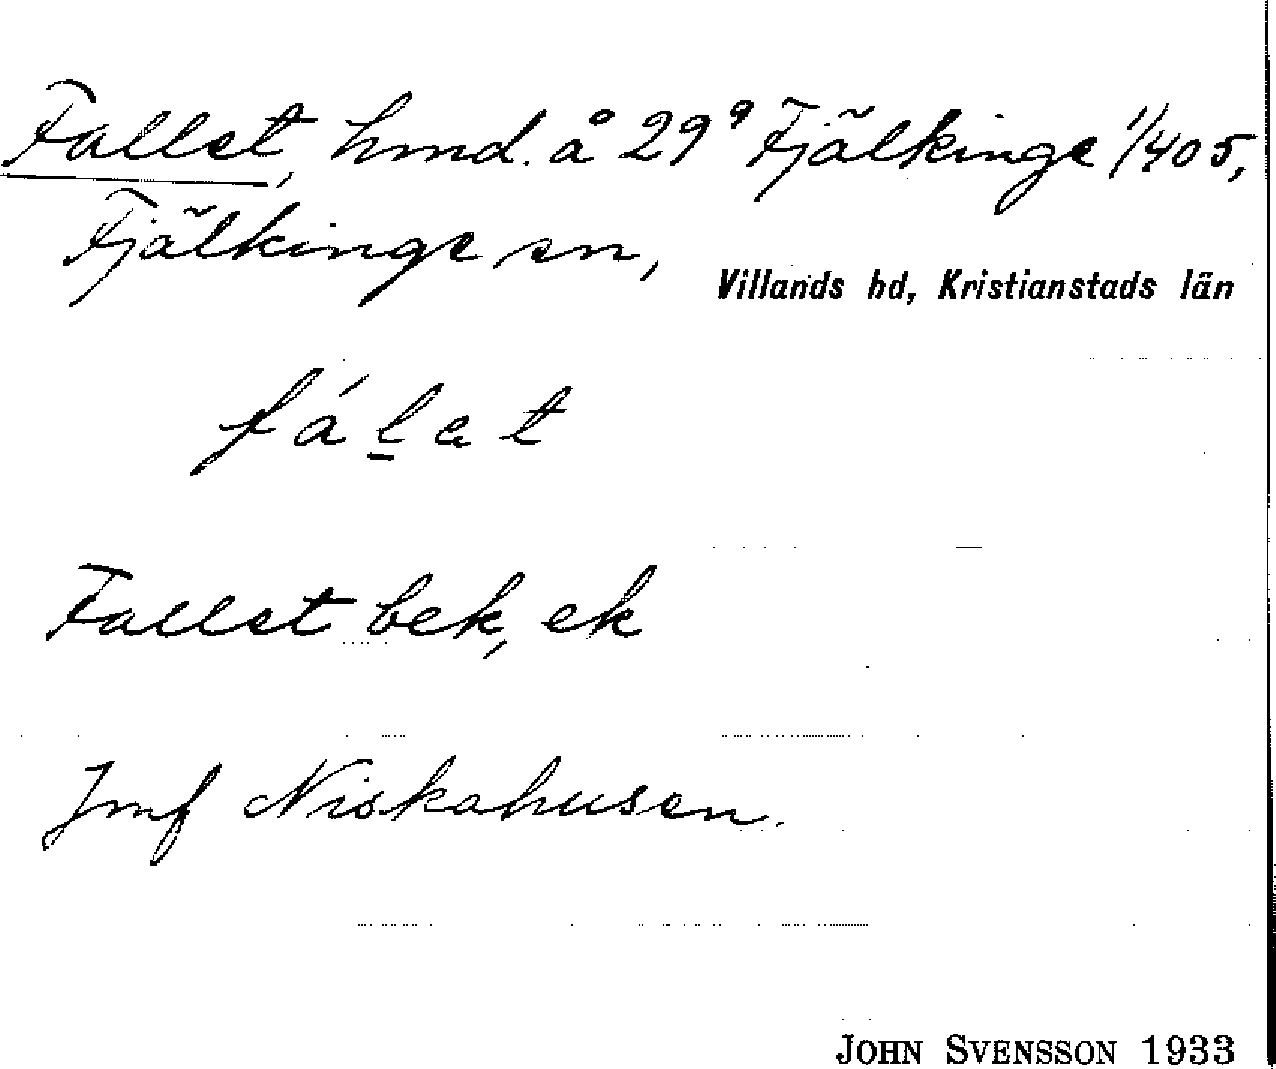 Fallet, hmd. å 29⁹ Fjälkinge 1/405,
Fjälkinge sn,
Villands hd, Kristianstads län
fál̲ət
Fallet bek, ek
Jmf Niskahusen.
JOHN SVENSSON 1933